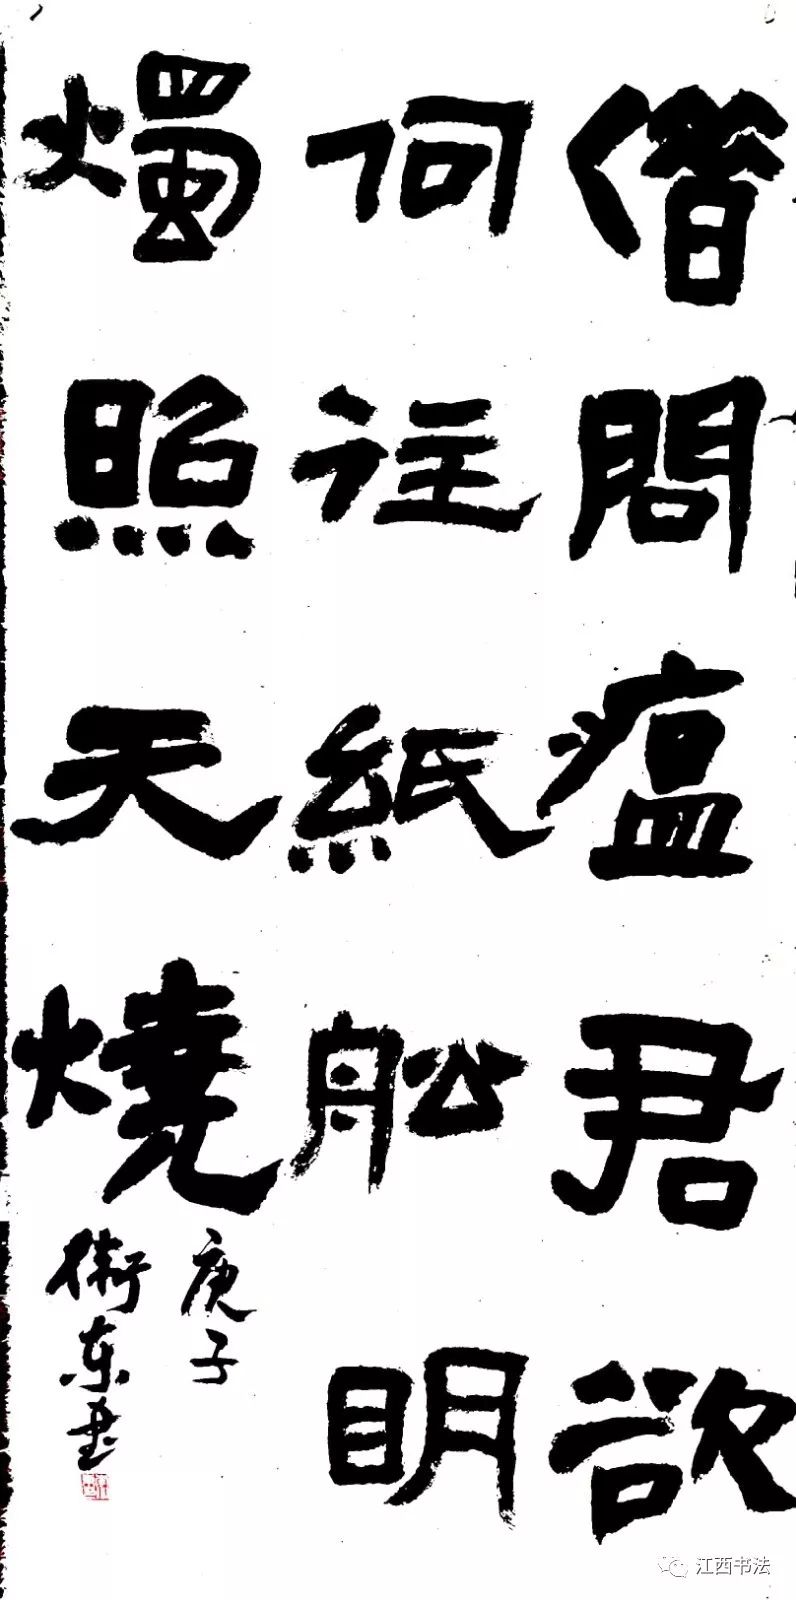 借問瘟君欲
何往紙船明
燭照天燒
庚子
衛東書
江西书法